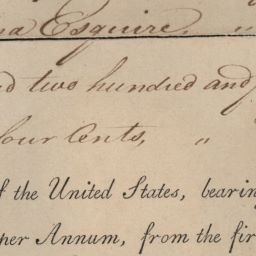 Esquire. "
two hundred and
four Cents, "
of the United States, bearing
per Annum, from the fir